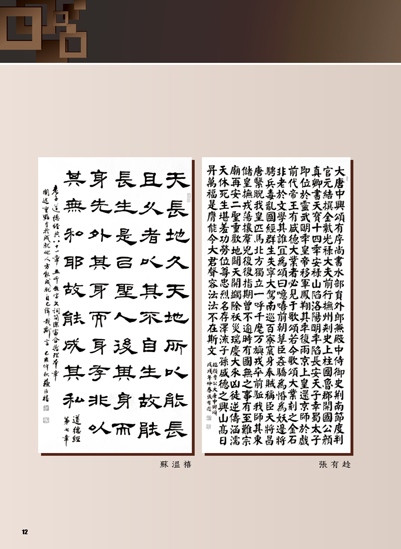 大唐中興頌有序尚書水部員外郎兼殿中侍御史荊南節度判
官元結撰金紫光祿大夫前行撫州刺史上柱國魯郡開國公顏
真卿書天寶十四年安祿山陷洛陽明年陷長安天子幸蜀太子
即位於靈武明年皇帝移軍鳳翔其年復兩京上皇還京師於戲
前代帝王有盛德大業者必見于歌頌若今歌頌大業刻之金石
非老於文學其誰宜為頌曰噫嘻前朝孽臣姦驕為惛為妖邊將
騁兵毒亂國經群生失寧大駕南巡百寮竄身奉賊稱臣天將昌
唐繄睨我皇匹馬北方獨立一呼千麾萬旟戎卒前驅我師其東
儲皇撫戎蕩攘群兇復復指期曾不逾時有國無之事有至難宗
廟再安二聖重歡地闢天開蠲除祅災瑞慶大來凶徒逆儔涵濡
天休死生堪羞功勞位尊忠烈名存澤流子孫盛德之興山高日
昇萬福是膺能令大君聲容沄沄不在斯文
張有
天長地久天地所以能長
且久者以其不自生故能
長生是以聖人後其身而
身先外其身而身存非以
其無私耶故能成其私
道德經
第七章
蘇溫
12